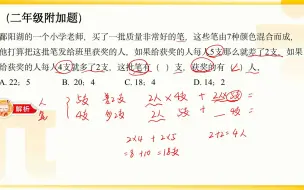 (二年级附加题)
鄱阳湖的一个小学老师,买了一批质量非常好的笔,这些笔由7种颜色混合而成,
他打算把这批笔发给班里获奖的人,如果给获奖的人每人5支那么就差了2支,如果
给获奖的人每人4支就多了2支,这批笔有( )支,获奖的有( )人。
A. 22;5 B. 20;2 C. 18;4 D. 14;2
解析
人 5支 差2支 2人 4支 +
笔 4支 多2支 2人 5支 + 4支
2×4 + 2×5 2+2=4人
=8+10=18支